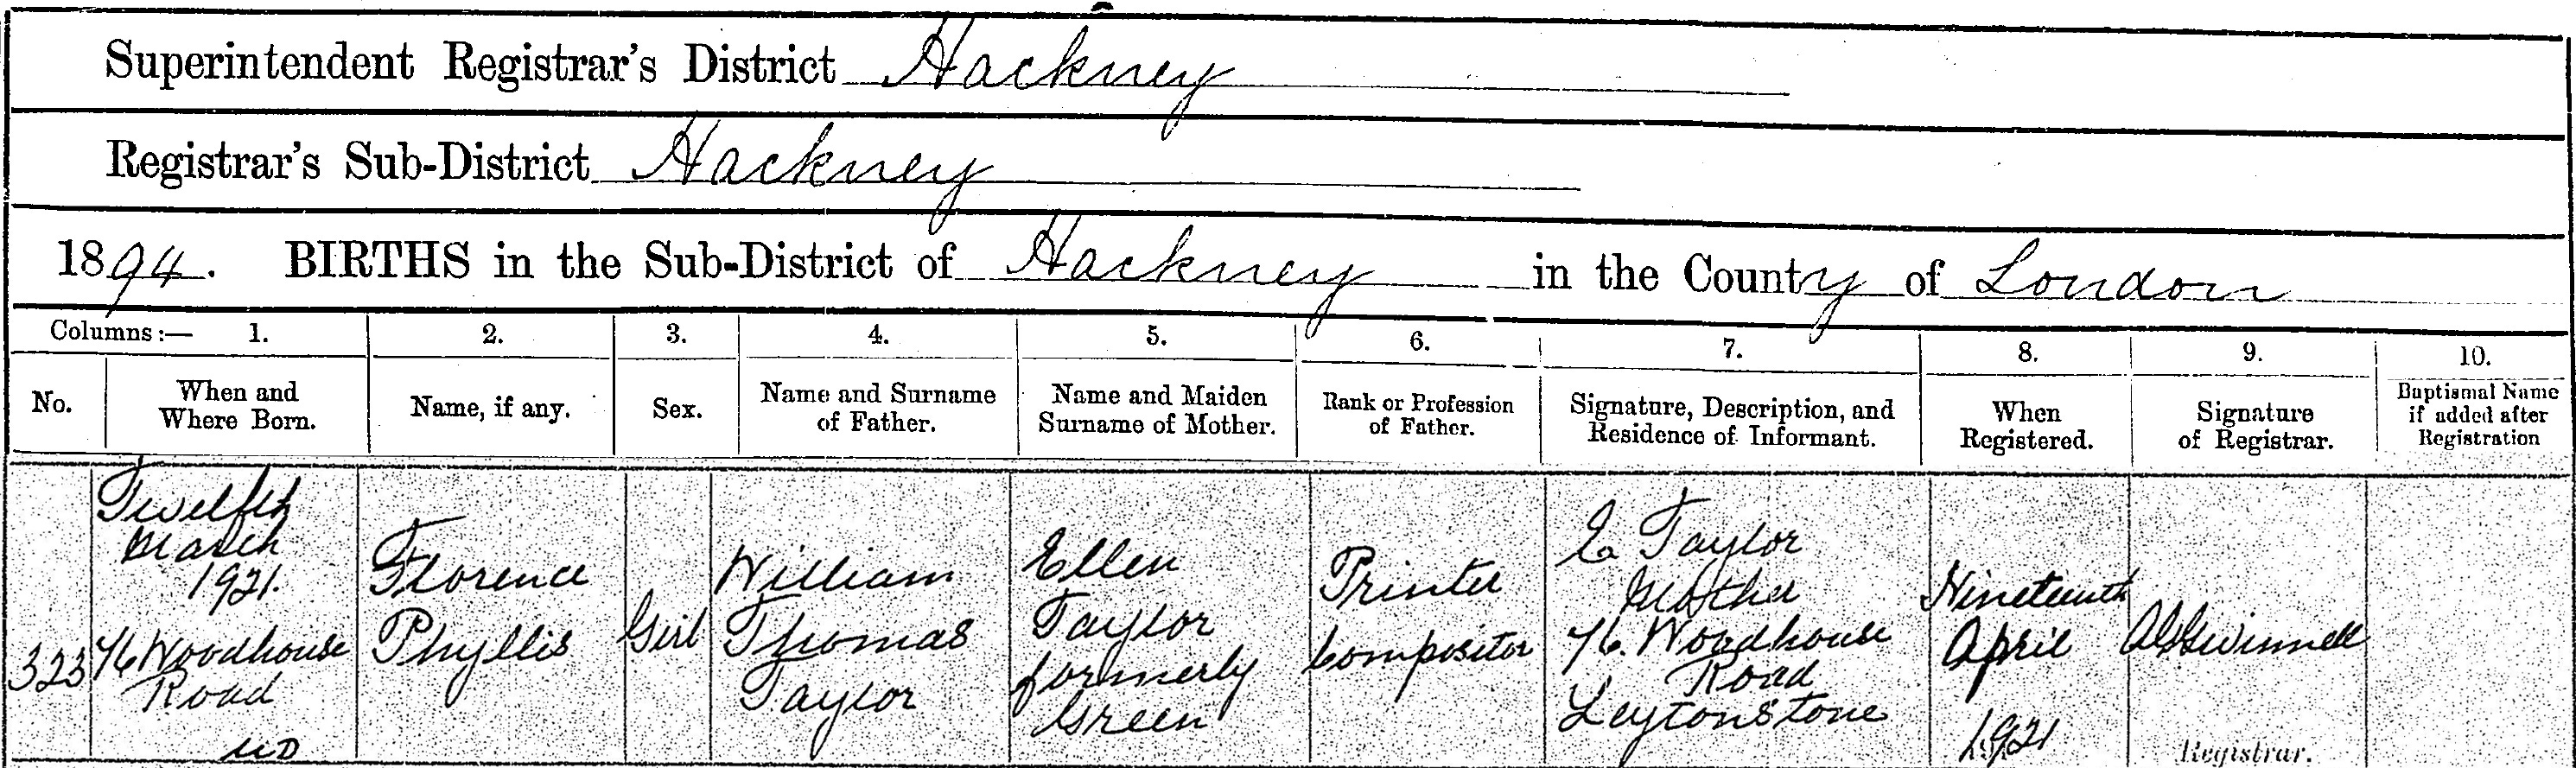 Superintendent Registrar's District Hackney
Registrar's Sub-District Hackney
1894. BIRTHS in the Sub-District of Hackney in the County of London
Columns:— 1. 2. 3. 4. 5. 6. 7. 8. 9. 10.
No.
When and
Where Born.
Name, if any.
Sex.
Name and Surname
of Father.
Name and Maiden
Surname of Mother.
Rank or Profession
of Father.
Signature, Description, and
Residence of Informant.
When
Registered.
Signature
of Registrar.
Baptismal Name
if added after
Registration
323
Twelfth
March
1921.
76 Woodhouse
Road
UD
Florence
Phyllis
Girl
William
Thomas
Taylor
Ellen
Taylor
formerly
Green
Printer
Compositor
E Taylor
Mother
76. Woodhouse
Road
Leytonstone
Nineteenth
April
1921
Registrar.